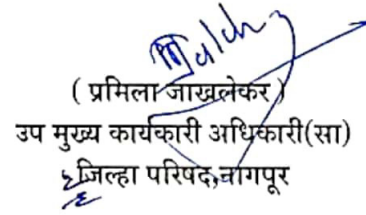 ( प्रमिला जाखलेकर )
उप मुख्य कार्यकारी अधिकारी(सा)
जिल्हा परिषद,नागपूर